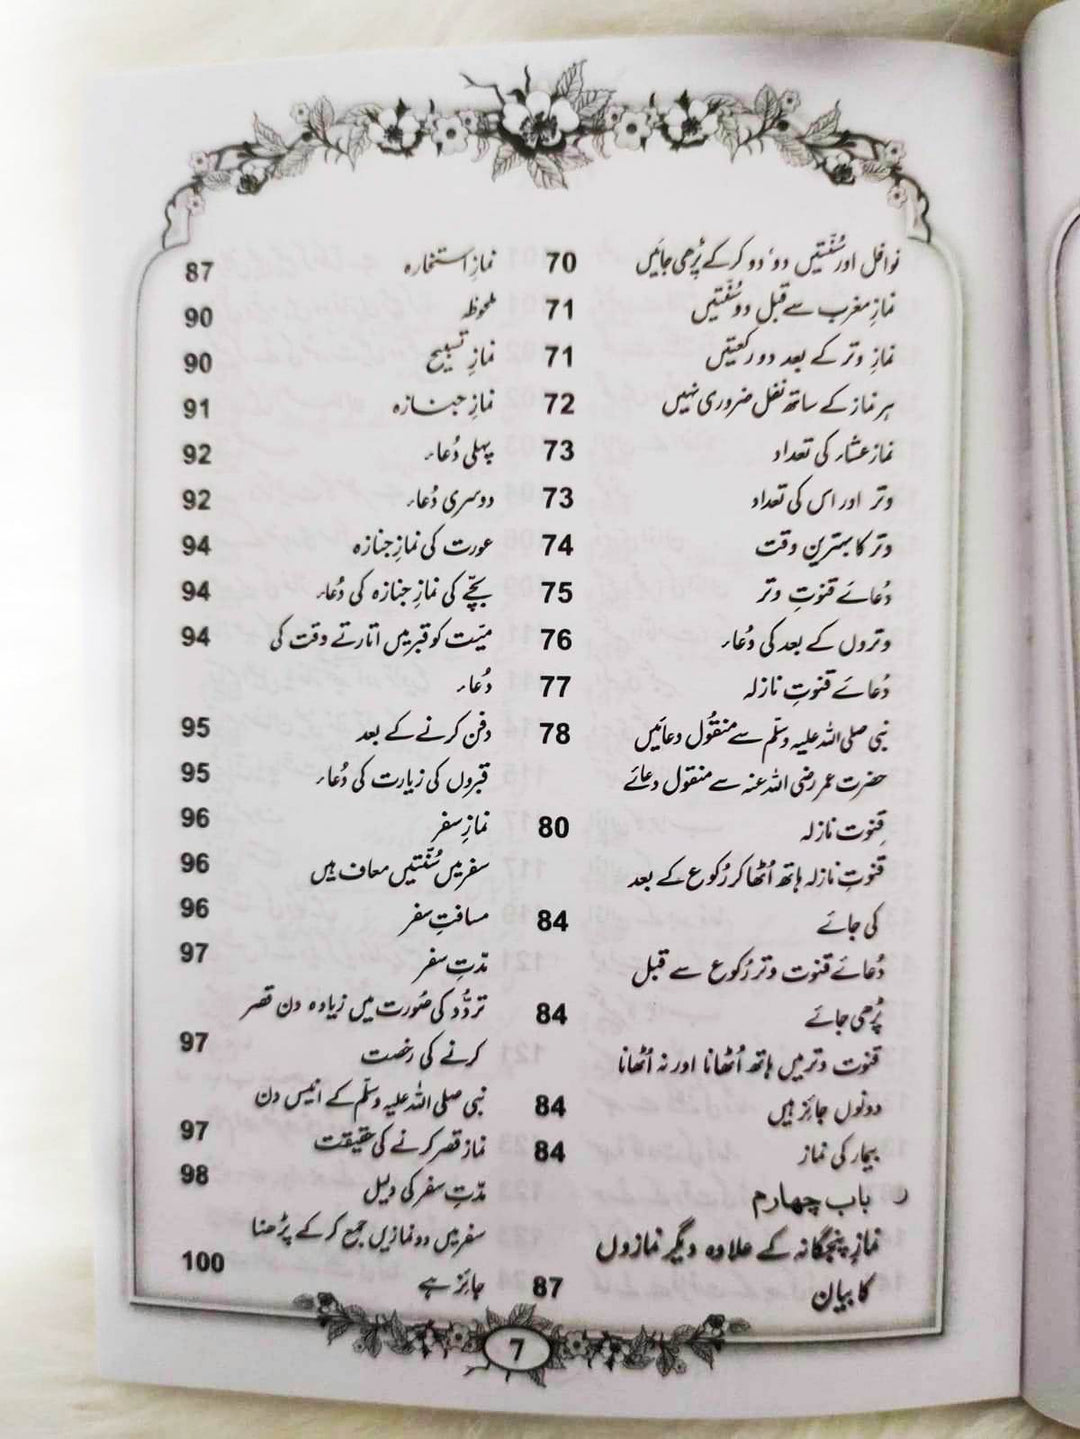 نوافل اور سُنّتیں دو، دو کر کے پڑھی جائیں 70
نمازِ مغرب سے قبل دو سُنّتیں 71
نمازِ وتر کے بعد دو رکعتیں 71
ہر نماز کے ساتھ نفل ضروری نہیں 72
نماز عشاء کی تعداد 73
وتر اور اس کی تعداد 73
وتر کا بہترین وقت 74
دُعائے قنوتِ وتر 75
وتروں کے بعد کی دُعاء 76
دُعائے قنوتِ نازلہ 77
نبی صلی اللہ علیہ وسلّم سے منقُول دعائیں 78
حضرت عمر رضی اللہ عنہ سے منقول دعائے
قنوت نازلہ 80
قنوتِ نازلہ ہاتھ اُٹھا کر رُکوع کے بعد
کی جائے 84
دُعائے قنوت وتر رُکوع سے قبل
پڑھی جائے 84
قنوت وتر میں ہاتھ اُٹھانا اور نہ اُٹھانا
دونوں جائز ہیں 84
بیمار کی نماز 84
باب چہارم
نمازِ پنجگانہ کے علاوہ دیگر نمازوں
کا بیان 87
نمازِ استخارہ 87
ملحوظہ 90
نمازِ تسبیح 90
نمازِ جنازہ 91
پہلی دُعاء 92
دوسری دُعاء 92
عورت کی نمازِ جنازہ 94
بچّے کی نمازِ جنازہ کی دُعاء 94
میّت کو قبر میں اتارتے وقت کی 94
دُعاء
دفن کرنے کے بعد 95
قبروں کی زیارت کی دُعاء 95
نمازِ سفر 96
سفر میں سُنّتیں معاف ہیں 96
مسافتِ سفر 96
مدّتِ سفر 97
تردُّد کی صُورت میں زیادہ دن قصر
کرنے کی رخصت 97
نبی صلی اللہ علیہ وسلّم کے انیس دن
نماز قصر کرنے کی حقیقت 97
مدّتِ سفر کی دلیل 98
سفر میں دو نمازیں جمع کر کے پڑھنا
جائز ہے 100
7